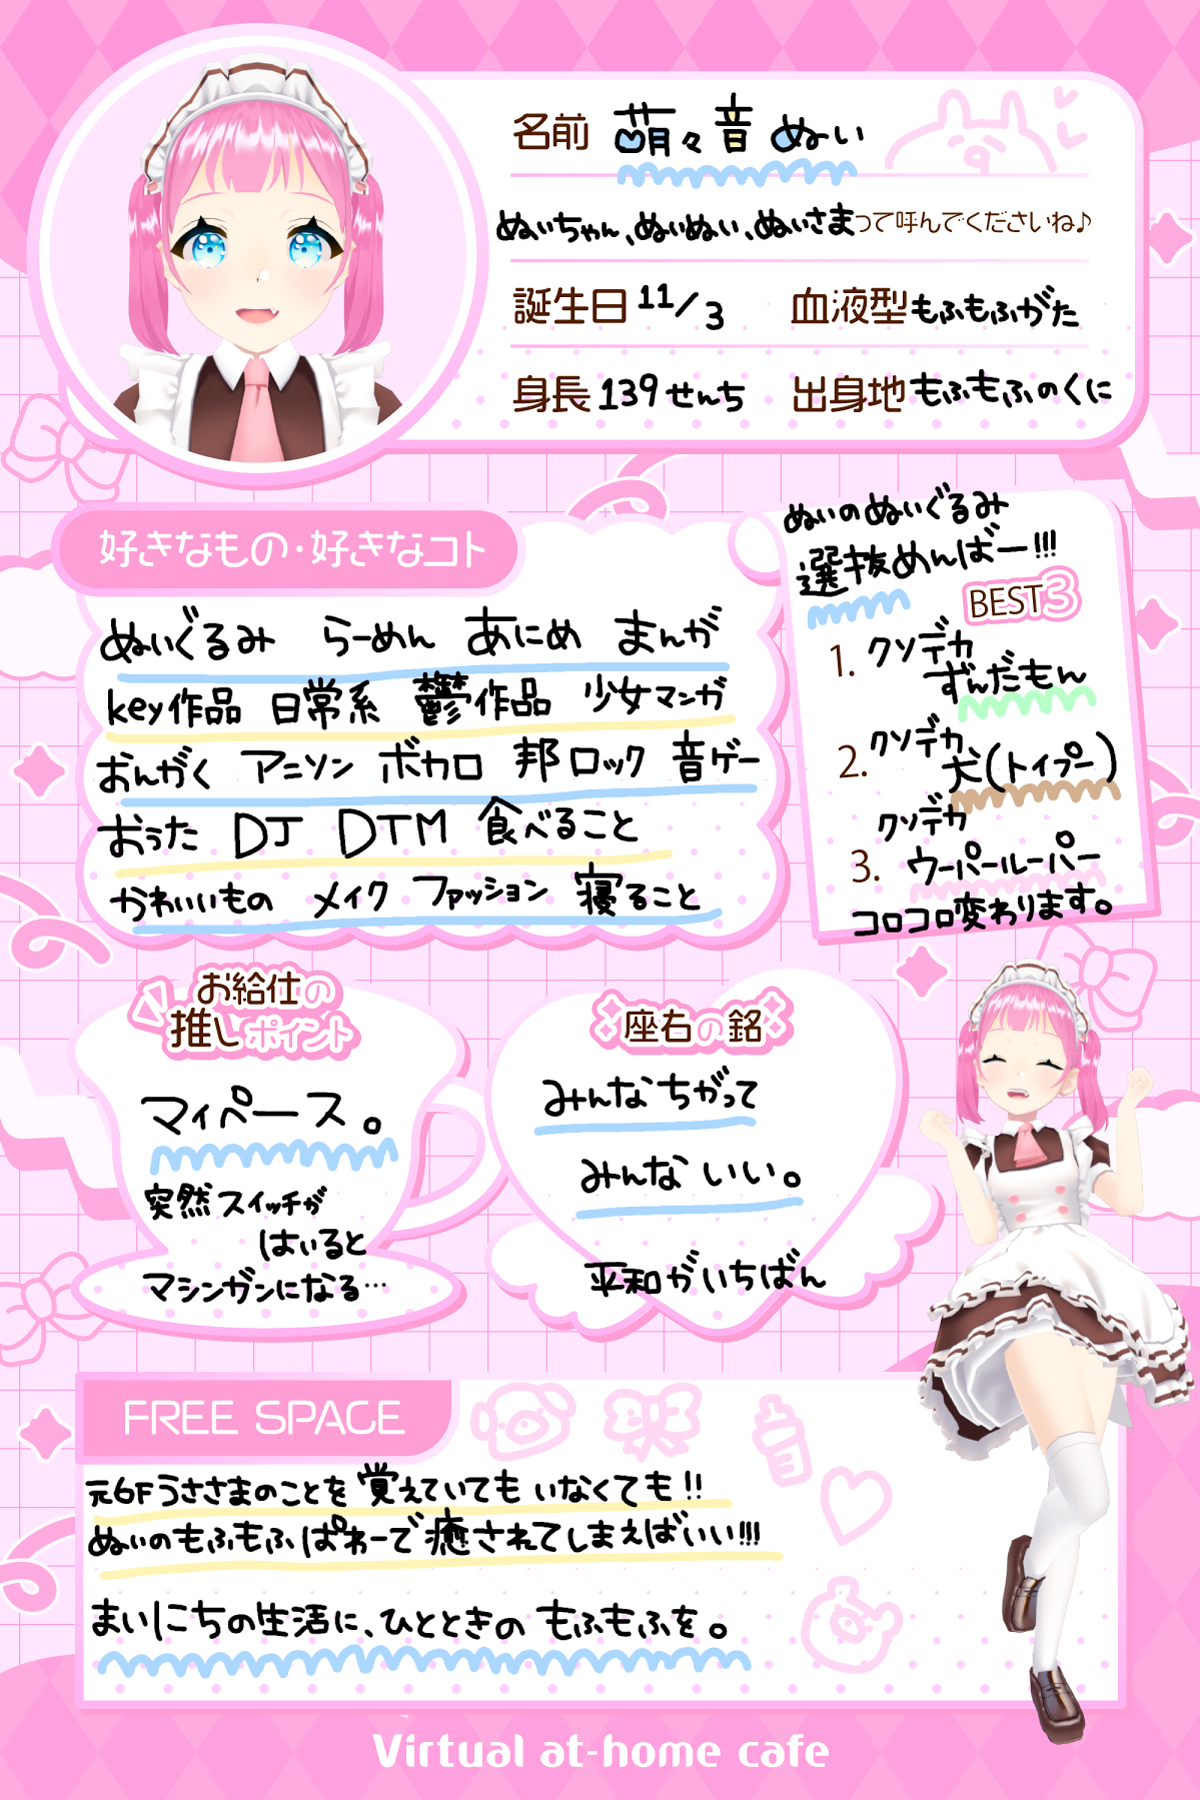 名前 萌々音 ぬい
ぬいちゃん、ぬいぬい、ぬいさまって呼んでくださいね♪
誕生日 11/3 血液型 もふもふがた
身長 139せんち 出身地 もふもふのくに
好きなもの・好きなコト
ぬいぐるみ らーめん あにめ まんが
key作品 日常系 鬱作品 少女マンガ
おんがく アニソン ボカロ 邦ロック 音ゲー
おうた DJ DTM 食べること
かわいいもの メイク ファッション 寝ること
ぬいのぬいぐるみ
選抜めんばー!!!
BEST3
1. クソデカ
ずんだもん
2. クソデカ
犬(トイプー)
クソデカ
3. ウーパールーパー
コロコロ変わります。
お給仕の
推しポイント
マイペース。
突然スイッチが
はいると
マシンガンになる…
座右の銘
みんなちがって
みんないい。
平和がいちばん
FREE SPACE
元6Fうささまのことを覚えていてもいなくても!!
ぬいのもふもふぱわーで癒されてしまえばいい!!!
まいにちの生活に、ひとときのもふもふを。
Virtual at-home cafe